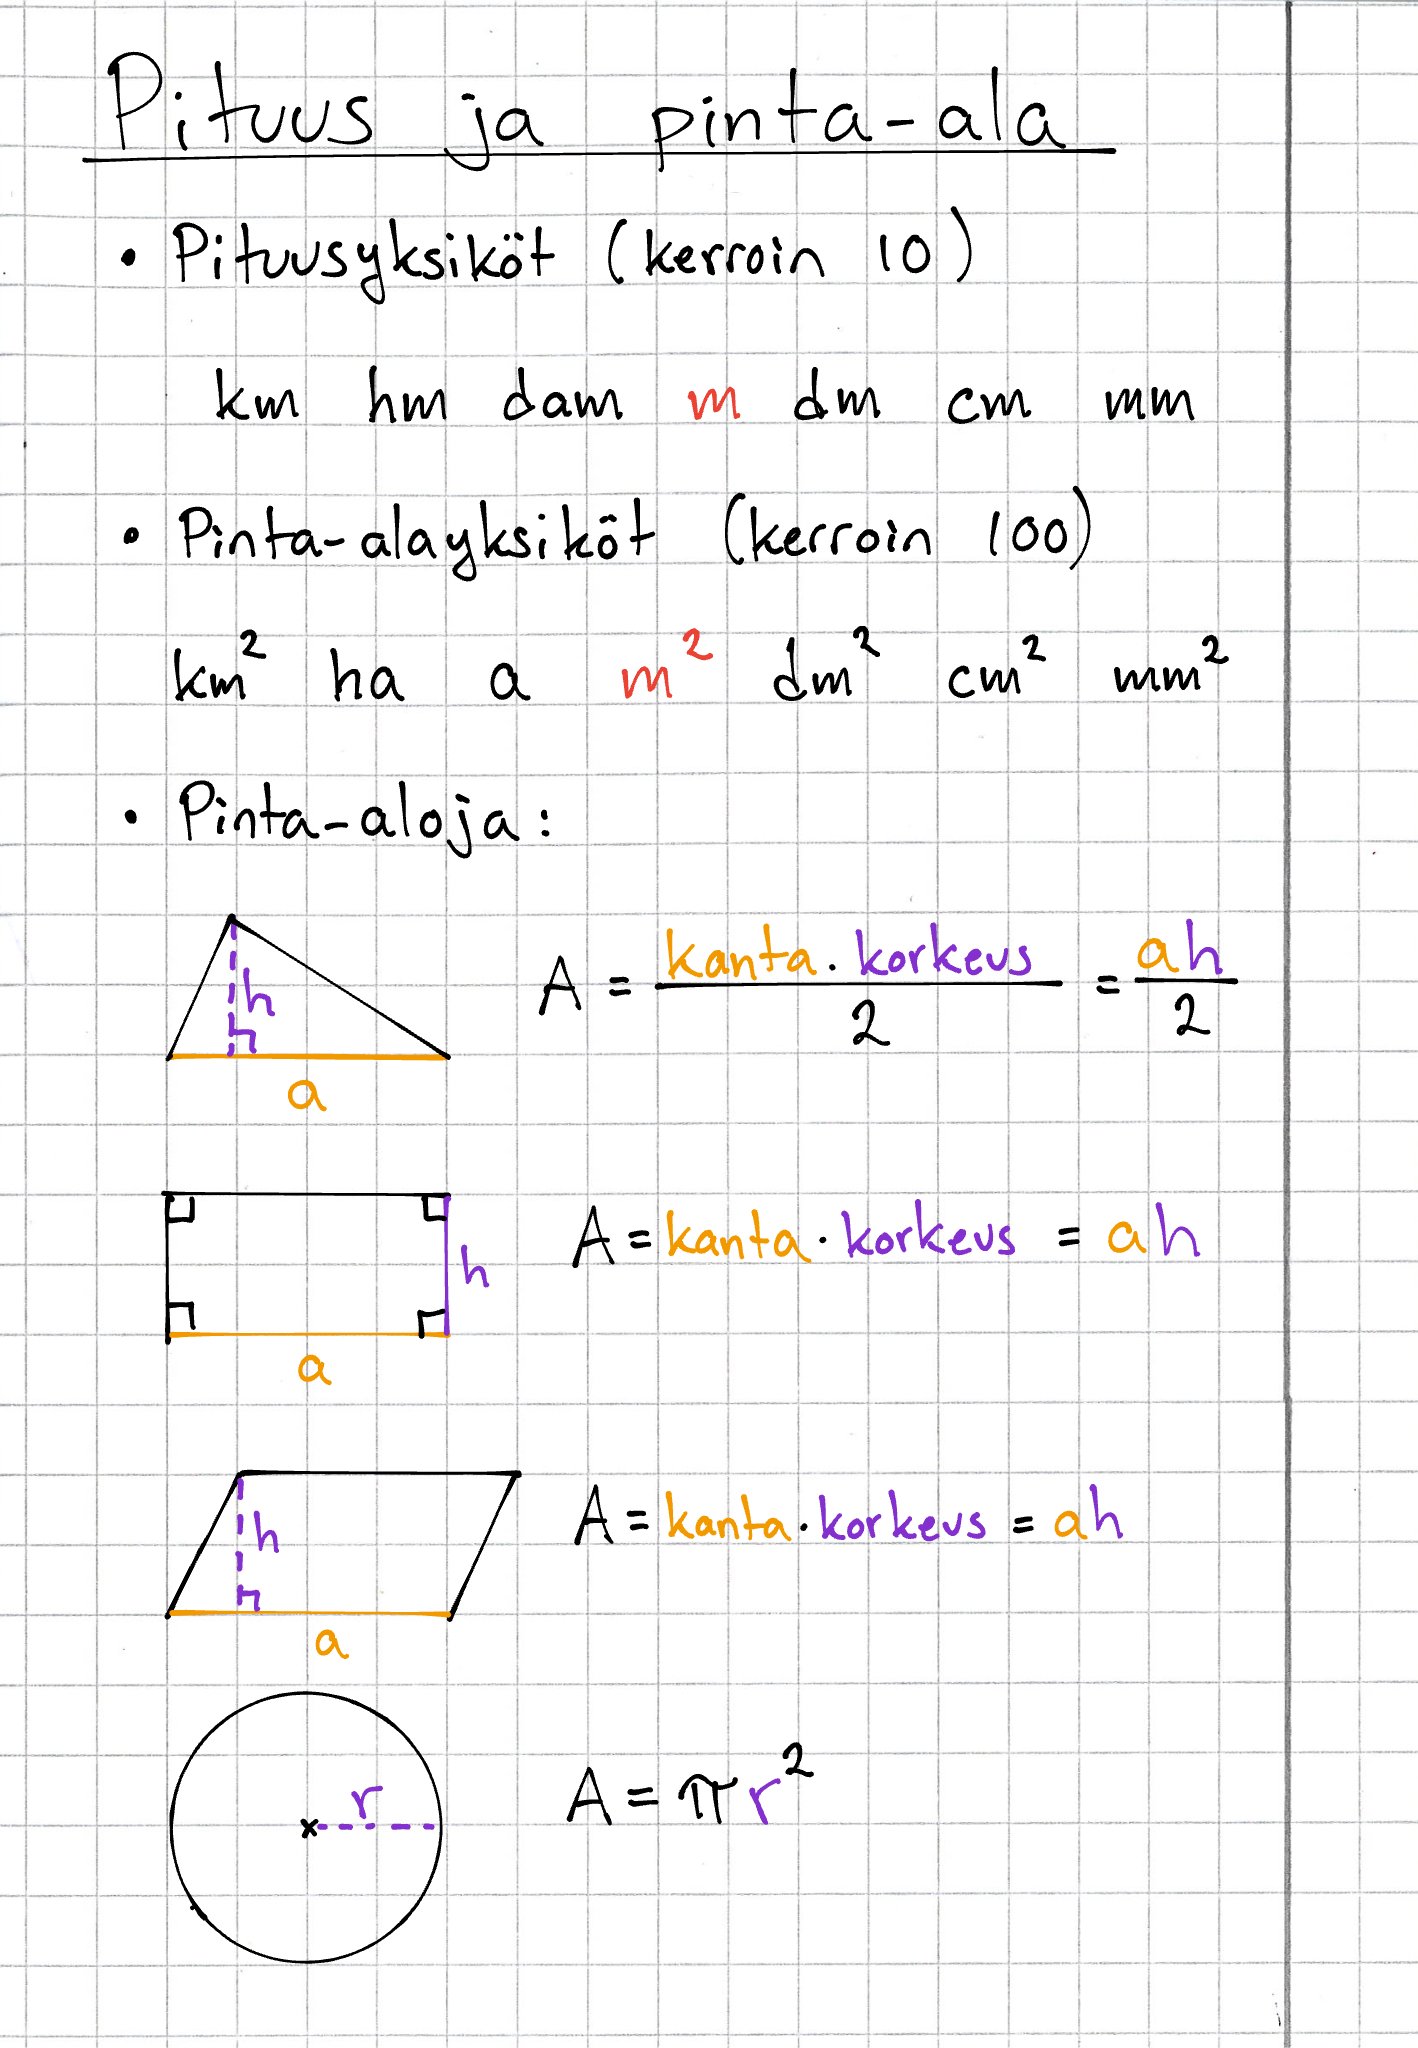 Pituus ja pinta-ala
• Pituusyksiköt (kerroin 10)
km hm dam m dm cm mm
• Pinta-alayksiköt (kerroin 100)
km² ha a m² dm² cm² mm²
• Pinta-aloja:
h
a
A = kanta · korkeus / 2 = ah / 2
h
a
A = kanta · korkeus = ah
h
a
A = kanta · korkeus = ah
r
A = πr²